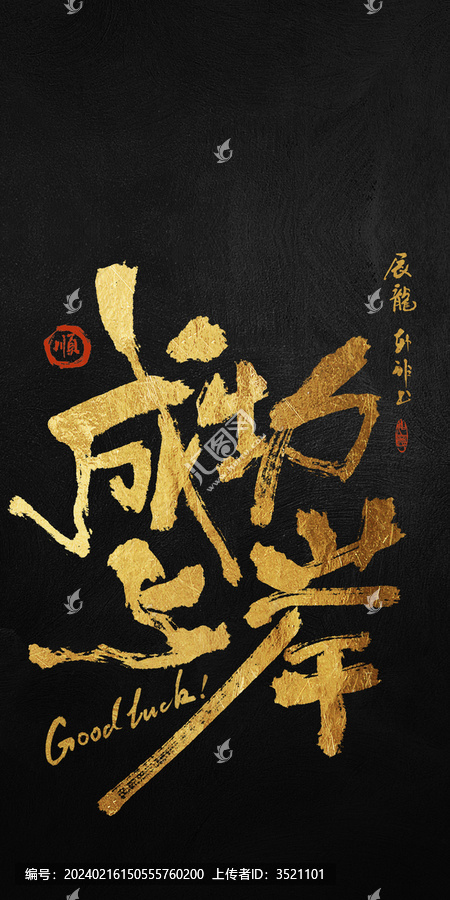 成功
上岸
Good luck!
順
辰龍
编号：20240216150555760200 上传者ID：3521101